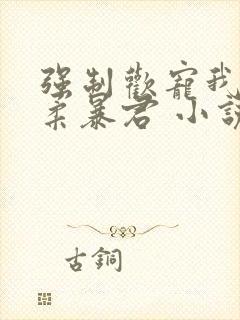 强制歡寵我
柔暴君 小說
古銅